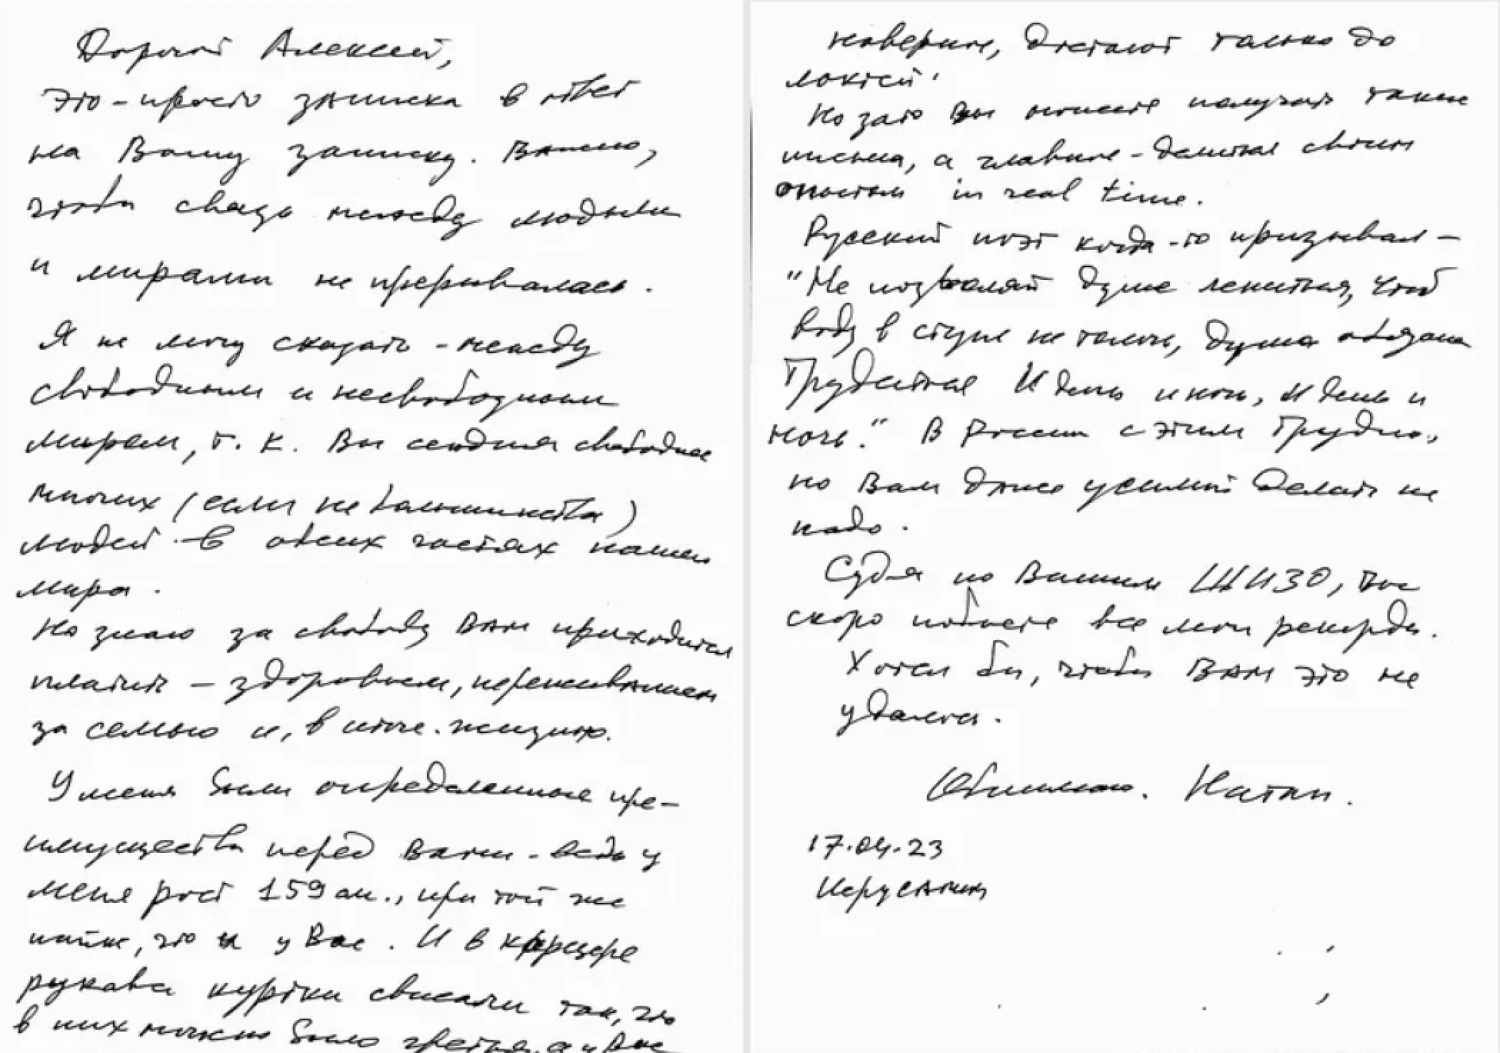 Дорогой Алексей,
Это - просто записка в ответ
на Вашу записку. Важно,
чтобы связь между людьми
и мирами не прерывалась.
Я не могу сказать - между
свободным и несвободным
мирам, т. к. Вы сегодня свободнее
многих (если не большинства)
людей в обеих частях нашего
мира.
Но знаю за свободу Вам приходится
платить - здоровьем, переживанием
за семью и, в итоге, жизнью.
У меня были определенные пре-
имущества перед Вами - ведь у
меня рост 159 см., при той же
пайке, что и у Вас. И в карцере
рукава куртки свисали так, что
в них можно было греться, а у Вас
наверное, достают только до
локтей.
Но зато Вы можете получать такие
письма, а главное - делиться своим
опытом in real time.
Русский поэт когда-то призывал -
"Не позволяй душе лениться, чтоб
воду в ступе не толочь, душа обязана
трудиться И день и ночь, и день и
ночь." В России с этим трудно,
но Вам даже усилий делать не
надо.
Судя по Вашим ШИЗО, Вы
скоро побьете все мои рекорды.
Хотел бы, чтобы Вам это не
удалось.
Обнимаю. Натан.
17.04.23
Иерусалим